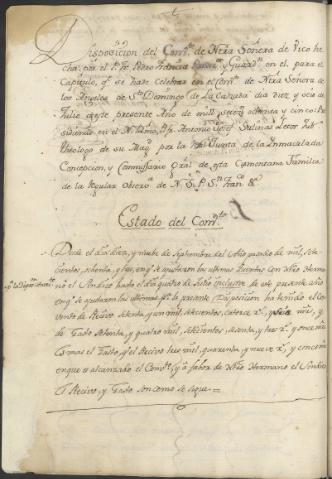 Disposicion del Convto. de Nrã Señora de Pico he
cha por el P. Fr. Pedro Garcia Guardn. en el, para el
Capitulo, qe. se hade Celebrar en el Convto. de Nrã Señora de
los Angeles de Sto. Domingo de La Calzada dia diez, y ocho de
Julio de este presente Año de mil setecs. ochenta y cinco Pre
sidiendo en el N. M. R. P. Fr. Antonio Josef Salinas Letor Jubo.
Theologo de su Magd. por la Rl. Junta de la Inmaculada
Concepcion, y Commissario Gral. de esta Cismontana Familia
de la Regular Observa. de N. S. P. Sn. Franco. &a
Estado del Convto.
Desde el dia diez, y nuebe de Septiembre del Año pasado de mil, sete
cientos, ochenta, y tres, en qe. se ajustaron las ultimas Quentas con nrõ Herma
no el Sindico hasta el dia quatro de Julio inclusive de este presente año
en qe. se ajustaron las ultimas pa. la presente Disposicion ha tenido el Con
vento de Recivo setenta, y un mil, doscientos, catorce rs. y mrs.
de Gasto setenta, y quatro mil, doscientos, sesenta, y tres rs. y once mrs.
es mas el Gasto, qe. el Recivo tres mil, quarenta, y nueve rs. y
en que es alcanzado el Convto. y a fabor de nrõ Hermano el Sindico
El Recivo, y Gasto son como se sigue